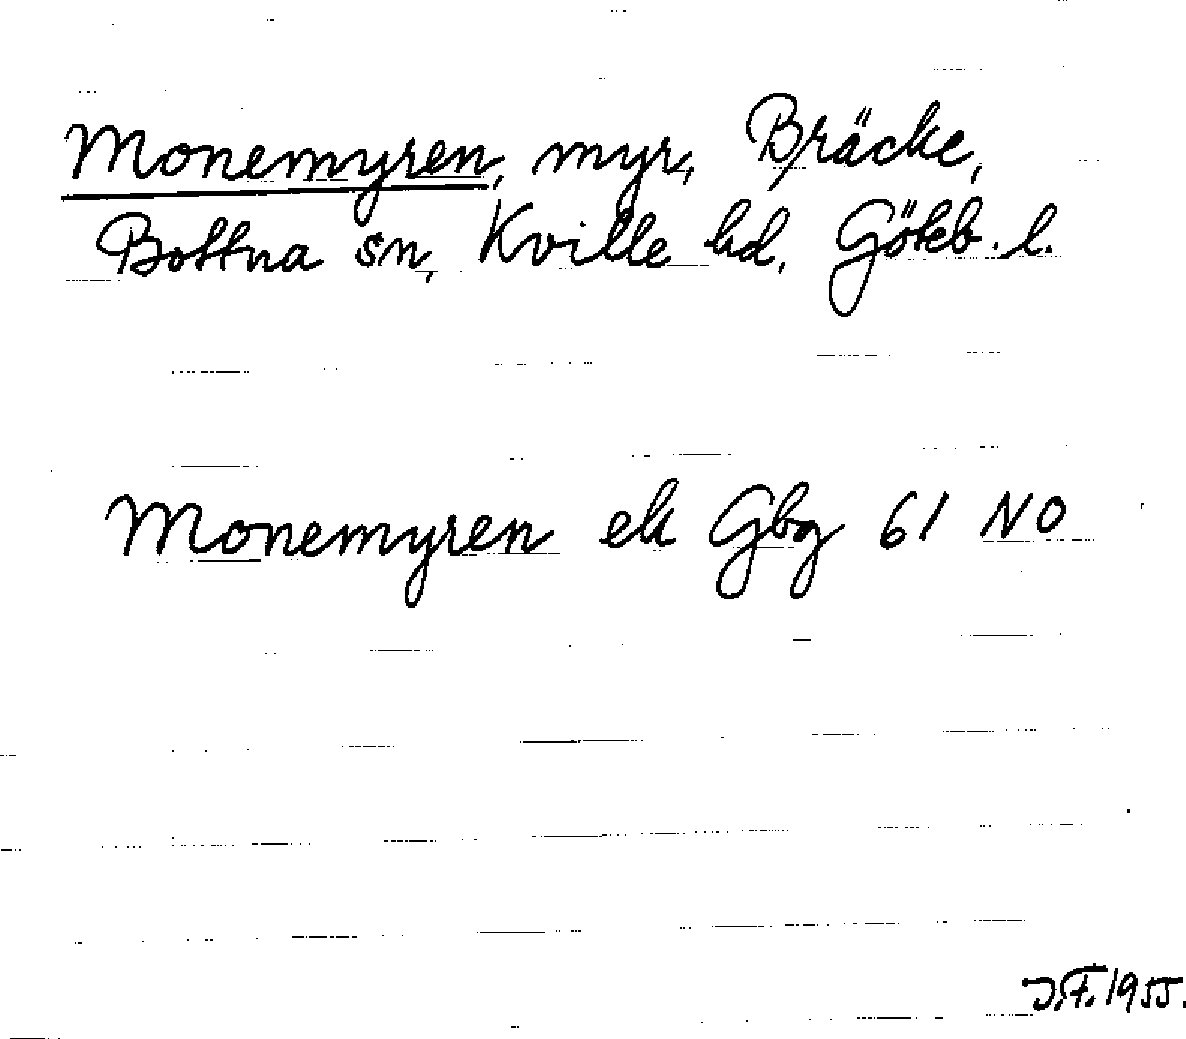 Monemyren, myr, Bräcke,
Bottna sn, Kville hd, Göteb. l.
Monemyren ek Gbg 61 NO
J.F. 1955.